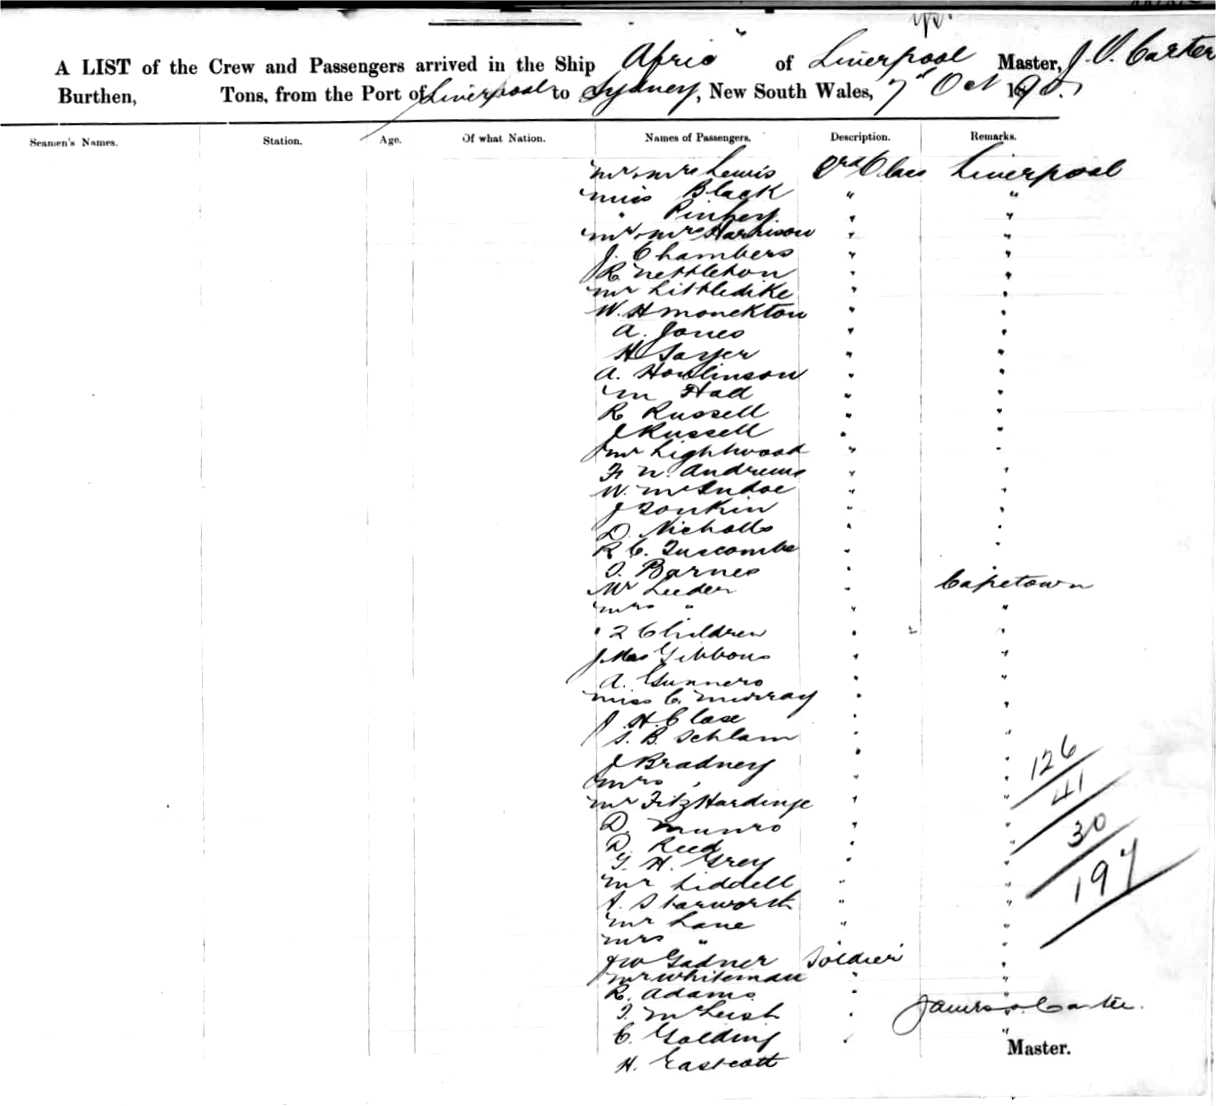 A LIST of the Crew and Passengers arrived in the Ship "Afric" of Liverpool Master, J. O. Carter
Burthen, Tons, from the Port of Liverpool to Sydney, New South Wales, 7th Oct 190
Seamen's Names. Station. Age. Of what Nation. Names of Passengers. Description. Remarks.
Mr & Mrs Lewis 3rd Class Liverpool
Miss Black " "
" Pinhey " "
Mr & Mrs Harrison " "
J. Chambers " "
R Nettleton " "
Mr Littledike " "
W. H Monckton " "
A. Jones " "
H Sayer " "
A. Howlinson " "
M Hall " "
R Russell " "
J Russell " "
Mr Lightwood " "
F. N. Andrews " "
W. McIndoe " "
J Sonkin " "
D. Nicholls " "
R C. Luscombe " "
J. Barnes " "
Mr Leeder " Capetown
Mrs " " "
" 2 Children " 2 "
J Mac Gibbons " "
A. Gunners " "
Miss C. Murray " "
J. H. Clase "
S. B. Schlam "
J Bradney " "
Mrs " " " 126
Mr FitzHardinge " " 41
D. Munro " " 30
D. Reed " "
G. H. Grey " " 197
Mr Liddell " "
A. Starworth " "
Mr Lane " "
Mrs " "
J W Gadner Soldier "
Mr Whiteman " "
R. Adams "
J. McLeish " James O. Carter.
C. Golding " "
Master.
H. Eastcott